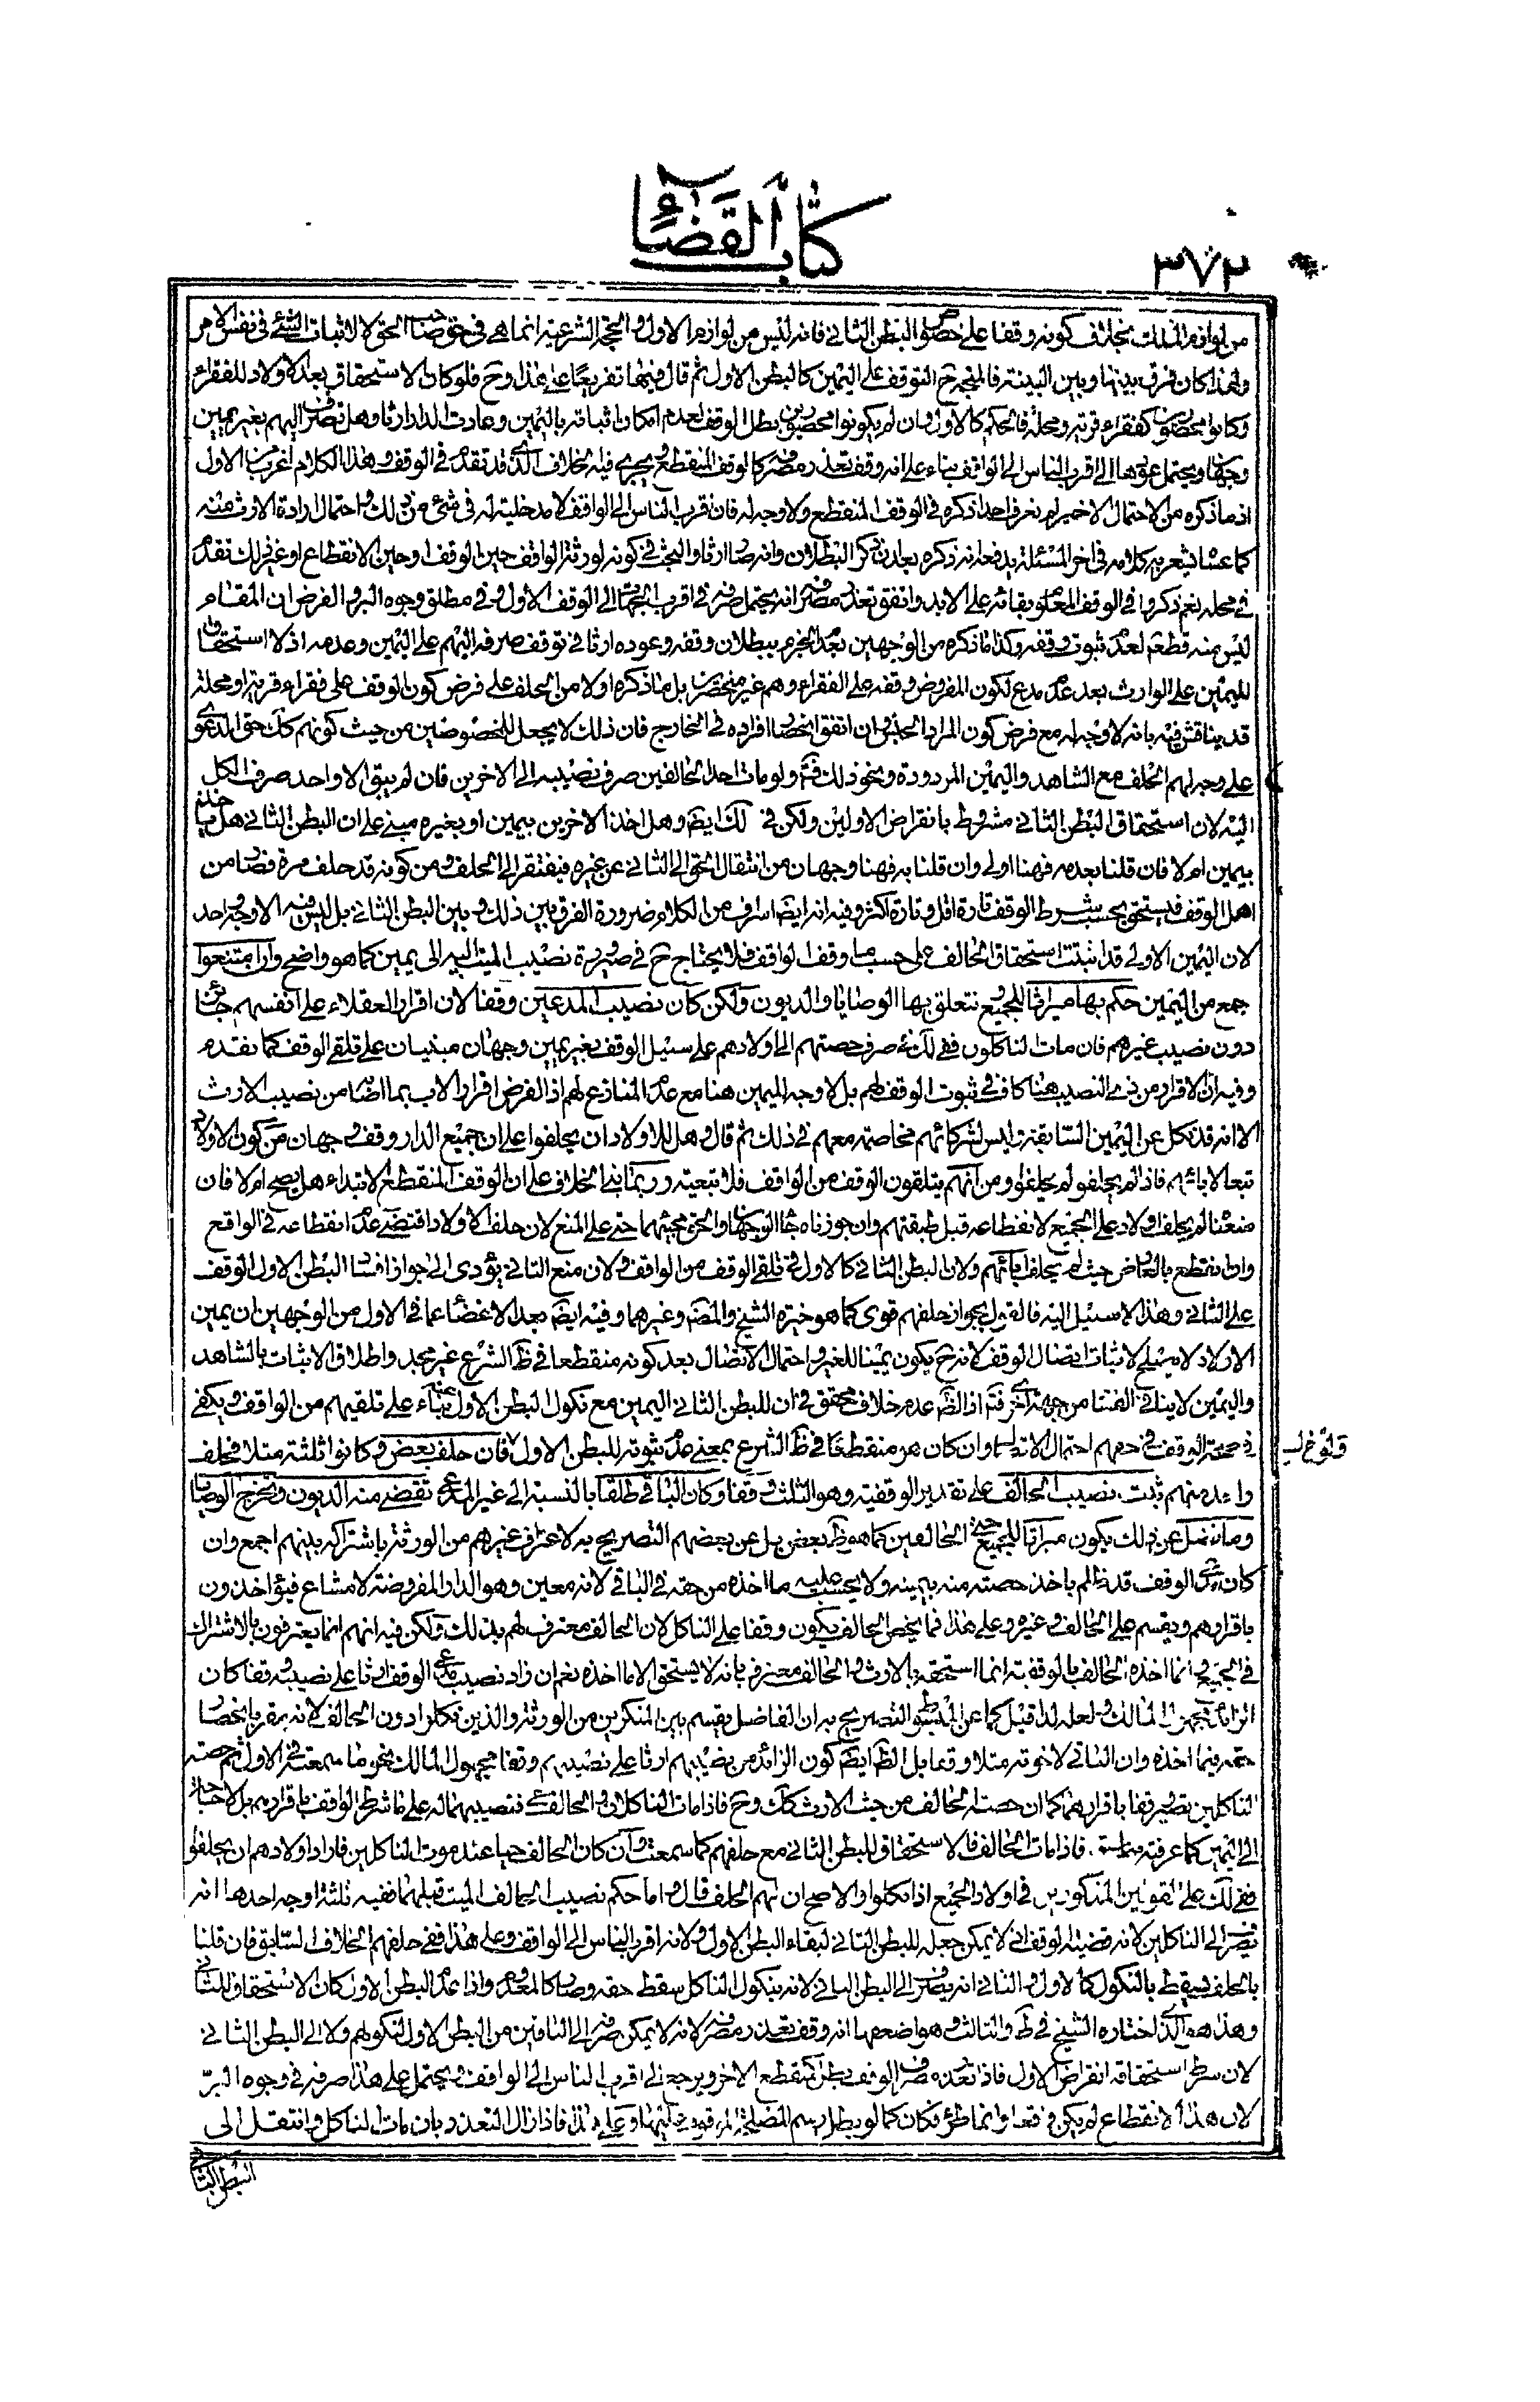 كتاب القضاء
٣٧٢
من لوازم الملك بخلاف كونه وقفا على خصوص البطن الثاني فانه ليس من لوازم الاول والحجة الشرعية انما هي في حق صاحب الحق لا لاثبات الشئ في نفس الامر
ولهذا كان فرق بينها وبين البينة فالمتجه ح التوقف على اليمين كالبطن الاول ثم قال فيها تفريعا على هذا وح فلو كان الاستحقاق بعد الاولاد للفقراء
وكانوا محصورين كفقراء قرية ومحلة فالحكم كالاول وان لم يكونوا محصورين بطل الوقف لعدم امكان اثباته باليمين وعادت الدار ارثا وهل تصرف اليهم بغير يمين
وجهان ويحتمل عودها الى اقرب الناس الى الواقف بناء على انه وقف تعذر مصرفه كالوقف المنقطع ويجرى فيه الخلاف الذي قد تقدم في الوقف وهذا الكلام اغرب من الاول
اذ ما ذكره من الاحتمال الاخير لم نعرف احدا ذكره في الوقف المنقطع ولا وجه له فان اقرب الناس الى الواقف لا مدخلية له في شئ من ذلك واحتمال ارادة الارث منه
كما عساه يشعر به كلامه في اخر المسئلة يدفعه انه ذكره بعد ان ذكر البطلان وانه صار ارثا والبحث في كونه لورثة الواقف حين الوقف او حين الانقطاع او غير ذلك تقدم
في محله نعم ذكروا في الوقف المعلوم بقائه على الابد واتفق تعذر مصرفه انه يحتمل صرفه في اقرب الجهات الى الوقف الاول وفي مطلق وجوه البر والفرض ان المقام
ليس منه قطعا لعدم ثبوت وقفه وكذا ما ذكره من الوجهين بعد الجزم ببطلان وقفه وعوده ارثا في توقف صرفه اليهم على اليمين وعدمه اذ لا استحقاق
لليمين على الوارث بعد عدم مدع لكون المفروض وقفه على الفقراء وهم غير منحصرين بل ما ذكره اولا من الحلف على فرض كون الوقف على فقراء قرية او محلة
قد يناقش فيه بانه لا وجه له مع فرض كون المراد الجنس وان اتفق انحصار افراده في الخارج فان ذلك لا يجعل للمخصوصين من حيث كونهم كك حق الدعوى
على وجه لهم الحلف مع الشاهد واليمين المردودة ونحو ذلك فتم ولو مات احد الحالفين صرف نصيبه الى الاخرين فان لم يبق الا واحد صرف الكل
اليه لان استحقاق البطن الثاني مشروط بانقراض الاولين ولكن في ذلك ايضا وهل اخذ الاخرين بيمين او بغيره مبنى على ان البطن الثاني هل ياخذ
بيمين ام لا فان قلنا بعدمه فهنا اولى وان قلنا به فهنا وجهان من انتقال الحق الى الثاني عن غيره فيفتقر الى الحلف ومن كونه قد حلف مرة فصار من
اهل الوقف فيستحق بحسب شرط الوقف تارة اقل وتارة اكثر وفيه انه ايضا اسراف من الكلام ضرورة الفرق بين ذلك وبين البطن الثاني بل ليس فيه الا وجه واحد
لان اليمين الاولى قد اثبتت استحقاق الحالف على حسب ما وقف الواقف فلا يحتاج ح في صيرورة نصيب الميت اليه الى يمين كما هو واضح وان امتنعوا
جمع من اليمين حكم بها ميراثا للجميع تتعلق بها الوصايا والديون ولكن كان نصيب المدعين وقفا لان اقرار العقلاء على انفسهم جائز
دون نصيب غيرهم فان مات الناكلون ففي ذلك صرف حصتهم الى اولادهم على سبيل الوقف بغير يمين وجهان مبنيان على تلقي الوقف كما تقدم
وفيه ان الاقرار من ذي النصيب هنا كاف في ثبوت الوقف لهم بل لا وجه لليمين هنا مع عدم المنازع لهم اذ الفرض اقرار الاب بما اصابه من نصيب الارث
الا انه قد نكل عن اليمين السابقة وليس لشركائهم مخاصمة معهم في ذلك ثم قال وهل للاولاد ان يحلفوا على ان جميع الدار وقف وجهان من كون الاولاد
تبعا لابائهم فاذا لم يحلفوا لم يحلفوا ومن انهم يتلقون الوقف من الواقف فلا تبعية وربما بنى الخلاف على ان الوقف المنقطع الابتداء هل يصح ام لا فان
منعنا لم يحلف الاولاد على الجميع لانقطاعه قبل طبقتهم وان جوزناه جاء الوجهان والحق مجيئهما حتى على المنع لان حلف الاولاد اقتضى عدم انقطاعه في الواقع
وان انقطع بالعارض حيث لم يحلف ابائهم ولان البطن الثاني كالاول في تلقي الوقف من الواقف ولان منع الثاني يؤدى الى جواز افساد البطن الاول الوقف
على الثاني وهذا لا سبيل اليه فالقول بجواز حلفهم قوى كما هو خيرة الشيخ والمصنف وغيرهما وفيه ايضا بعد الاغضاء عما في الاول من الوجهين ان يمين
الاولاد لا يصلح لاثبات اتصال الوقف لانه ح يكون يمينا للغير واحتمال الاتصال بعد كونه منقطعا في ظ الشرع غير مجد واطلاق الاثبات بالشاهد
واليمين لا ينافى الفساد من جهة اخرى فتم اذ الظ عدم خلاف محقق في ان للبطن الثاني اليمين مع نكول البطن الاول بناء على تلقيهم من الواقف ويكفي
في صحة الوقف في حقهم احتمال الاتصال وان كان هو منقطعا في ظ الشرع بمعنى عدم ثبوته للبطن الاول فان حلف بعض وكانوا ثلثة مثلا فحلف
قوله خ ل
واحد منهم ثبت نصيب الحالف على تقدير الوقفية وهو الثلث وقفا وكان الباقي طلقا بالنسبة الى غير المدعى تقضى منه الديون وتخرج الوصايا
وما فضل عن ذلك يكون ميراثا للجميع حتى الحالفين كما هو ظ بعض بل عن بعضهم التصريح به لاعتراف غيرهم من الورثة باشتراكه بينهم اجمع وان
كان مدعى الوقف قد ظلم باخذ حصته منه بيمينه ولا يحتسب عليه ما اخذه من حقه في الباقي لانه معين وهو الدار المفروضة لا مشاع فيؤاخذون
باقرارهم ويقسم على الحالف وغيره وعلى هذا فما يخص الحالف يكون وقفا على الناكل لان الحالف معترف لهم بذلك ولكن فيه انهم انما يعترفون بالاشتراك
في الجميع وانما اخذه الحالف بالوقفية انما استحقه بالارث والحالف معترف بانه لا يستحق الا ما اخذه نعم ان زاد نصيب مدعى الوقف ارثا على نصيبه وقفا كان
الزائد مجهول المالك ولعله لذا قيل كما عن المبسوط التصريح به ان الفاضل يقسم بين المنكرين من الورثة والذين نكلوا دون الحالف لانه يقر بانحصار
حقه فيما اخذه وان الباقي لاخوته مثلا وقفا بل الظ ايضا كون الزائد من نصيبهم ارثا على نصيبهم وقفا مجهول المالك نحو ما سمعته في الاول ثم حصة
الناكلين تصير وقفا باقرارهما كما ان حصة الحالف من حيث الارث كك وح فاذا مات الناكلان والحالف حي فنصيبهما له على ما شرط الواقف باقرارهم بل لا حاجة
الى اليمين كما عرفته سابقا فاذا مات الحالف فالاستحقاق للبطن الثاني مع حلفهم كما سمعت وان كان الحالف حيا عند موت الناكلين فاراد اولادهم ان يحلفوا
ففي ذلك على القولين المذكورين في اولاد الجميع اذا نكلوا والاصح ان لهم الحلف قال واما حكم نصيب الحالف الميت قبلهما ففيه ثلثة اوجه احدها انه
يصرف الى الناكلين لانه قضية الوقف اذ لا يمكن جعله للبطن الثاني لبقاء البطن الاول ولانه اقرب الناس الى الواقف وعلى هذا ففي حلفهم الخلاف السابق فان قلنا
بالحلف فيسقط بالنكول كالاول والثاني انه يصرف الى البطن الثاني لانه بنكول الناكل سقط حقه وصار كالمعدوم واذا عدم البطن الاول كان الاستحقاق للثاني
وهذا هو الذي اختاره الشيخ في ط والثالث وهو اضعفها انه وقف تعذر مصرفه لانه لا يمكن صرفه الى الباقين من البطن الاول لنكولهم ولا الى البطن الثاني
لان شرط استحقاقه انقراض الاول فاذا تعذر مصرف الوقف بطل كمنقطع الاخر ويرجع الى اقرب الناس الى الواقف ويحتمل على هذا صرفه في وجوه البر
لان هذا الانقطاع لم يكن واقعا وانما طرء فكان كما لو بطل رسم المصلحة الموقوف عليها وعلى هذا فاذا زال التعذر بان مات الناكل وانتقل الى
البطن الثاني